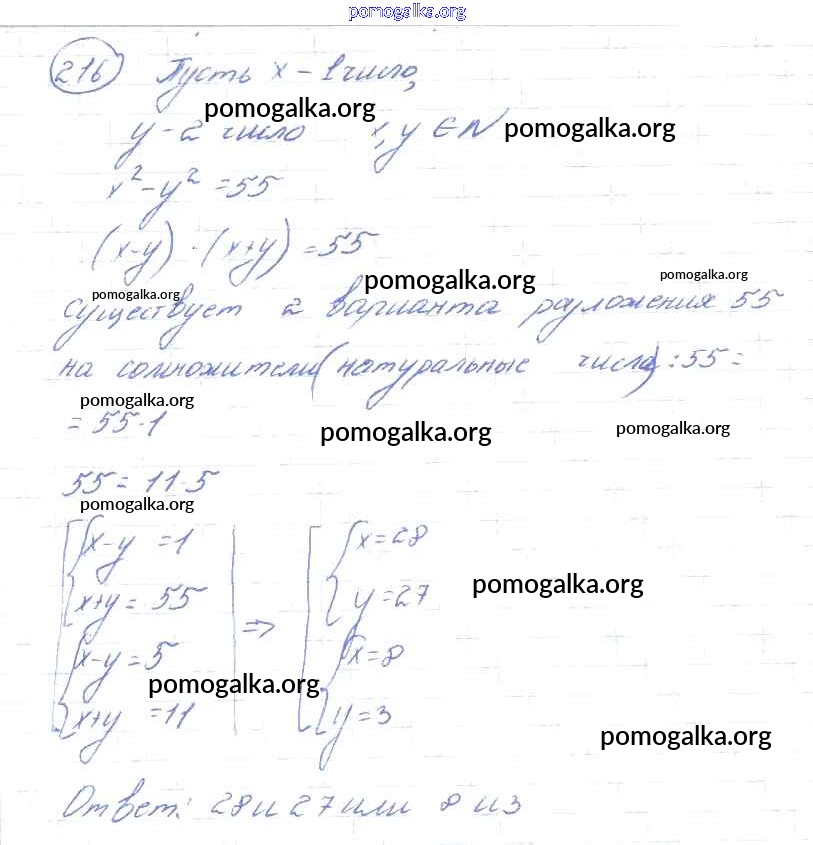 pomogalka.org
216 Пусть x - 1 число,
pomogalka.org
y - 2 число x, y ∈ N pomogalka.org
x² - y² = 55
(x-y) · (x+y) = 55
pomogalka.org pomogalka.org
pomogalka.org
существует 2 варианта разложения 55
на сомножители (натуральные числа) : 55 =
pomogalka.org
= 55·1
pomogalka.org pomogalka.org
55 = 11·5
pomogalka.org
x-y = 1 x = 28
pomogalka.org
x+y = 55 y = 27
=>
x-y = 5 x = 8
pomogalka.org
x+y = 11 y = 3
pomogalka.org
Ответ: 28 и 27 или 8 и 3